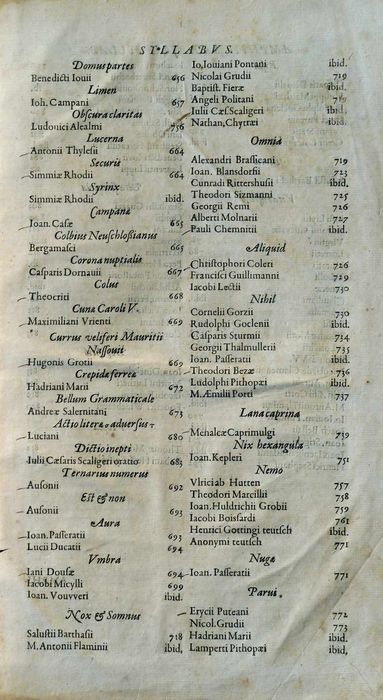 SYLLABVS.
Domus partes
Benedicti Iouii 656
Limen
Ioh. Campani 657
Obscura claritas
Ludouici Alealmi 756
Lucerna
Antonii Thylesii 664
Securis
Simmiæ Rhodii 664
Syrinx
Simmiæ Rhodii ibid.
Campana
Ioan. Casæ 665
Colbius Neuschloßianus
Bergamasci 665
Corona nuptialis
Casparis Dornauii 667
Colus
Theocriti 668
Cuna Caroli V.
Maximiliani Vrienti 669
Currus veliferi Mauritii
Nassouii
Hugonis Grotii 669
Crepidæ ferreæ
Hadriani Marii 672
Bellum Grammaticale
Andreæ Salernitani 673
Actio literæ σ aduersus τ
Luciani 680
Dictio inepti
Iulii Cæsaris Scaligeri oratio 683
Ternarius numerus
Ausonii 692
Est & non
Ausonii 693
Aura
Ioan. Passeratii 693
Lucii Ducatii 694
Vmbra
Iani Dousæ 694
Iacobi Micylli 699
Ioan. Vouveri ibid.
Nox & Somnus
Salustii Barthasii 718
M. Antonii Flaminii ibid.
Io, Iouiani Pontani ibid.
Nicolai Grudii 719
Baptist. Fieræ ibid.
Angeli Politani 719
Iulii Cæs. Scaligeri ibid.
Nathan, Chytræi ibid.
Omnia
Alexandri Brassicani 719
Ioan. Blansdorfii 723
Cunradi Rittershusii ibid.
Theodori Sizmanni 725
Georgii Remi 726
Alberti Molnarii 727
Pauli Chemnitii ibid.
Aliquid
Christophori Coleri 726
Francisci Guillimanni 729
Iacobi Lectii 730
Nihil
Cornelii Gorzii 730
Rudolphi Goclenii ibid.
Casparis Sturmii 734
Georgii Thalmullerii 735
Ioan. Passeratii ibid.
Theodori Bezæ 736
Ludolphi Pithopæi ibid.
M. Æmilii Porti 737
Lana caprina
Menalcæ Caprimulgi 739
Nix hexangula
Ioan. Kepleri 751
Nemo
Vlriciab Hutten 757
Theodori Marcillii 758
Ioan. Huldrichi Grobii 759
Iacobi Boissardi 761
Henrici Gottingi teutsch ibid.
Anonymi teutsch 771
Nugæ
Ioan. Passeratii 771
Parui.
Erycii Puteani 772
Nicol. Grudii 773
Hadriani Marii ibid.
Lamperti Pithopæi ibid,